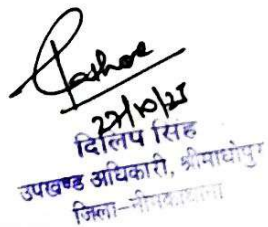 Rathore
27/10/25
दिलिप सिंह
उपखण्ड अधिकारी, श्रीमाधोपुर
जिला-नीमकाथाना